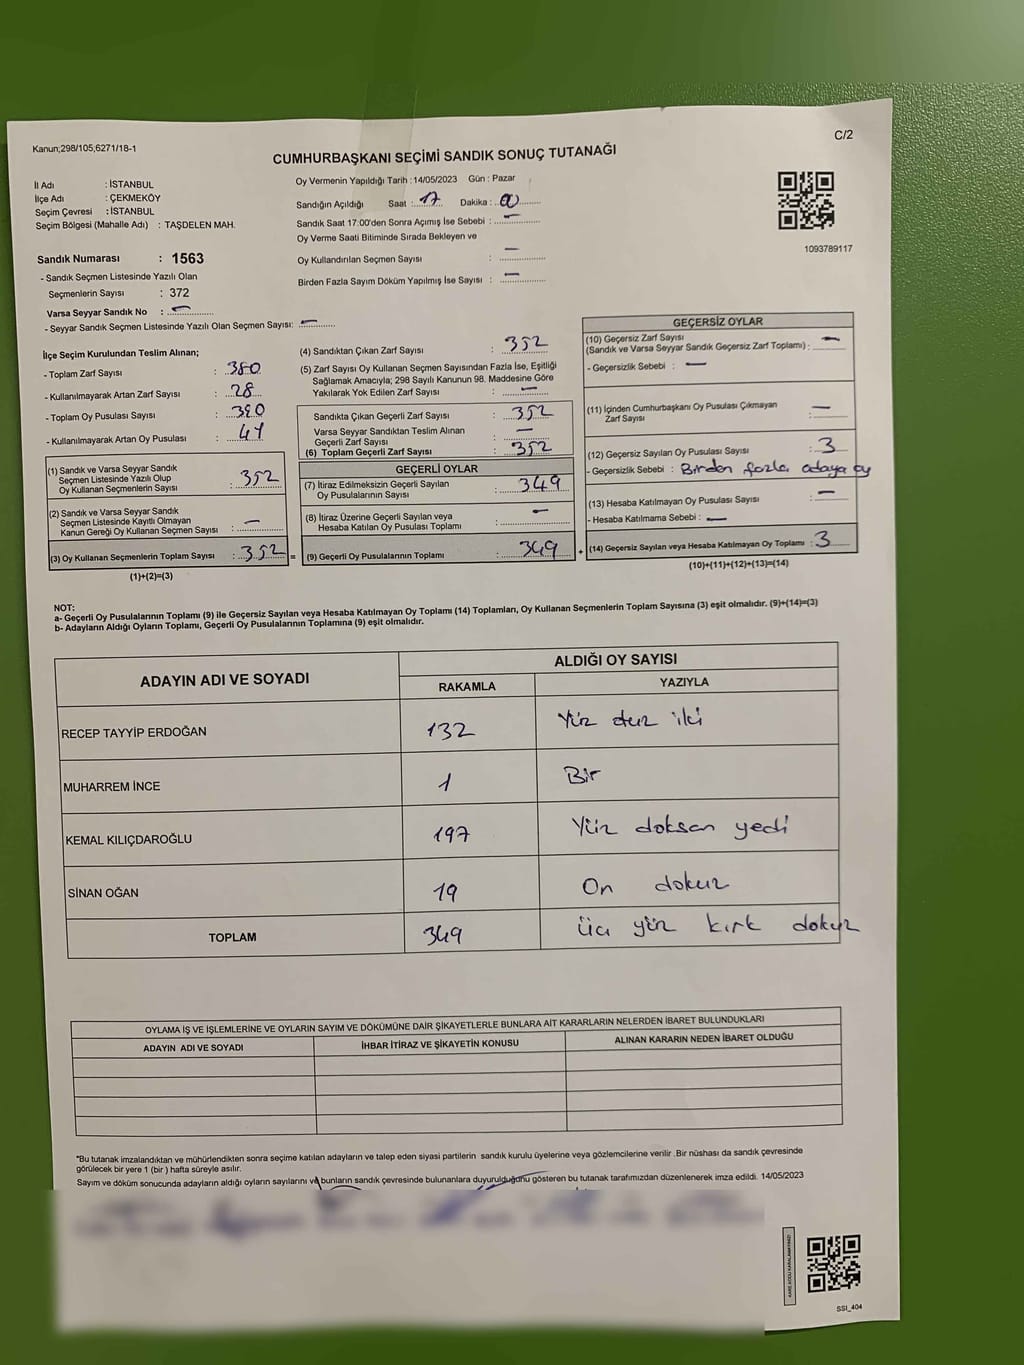 Kanun;298/105,6271/18-1
C/2
CUMHURBAŞKANI SEÇİMİ SANDIK SONUÇ TUTANAĞI
İl Adı : İSTANBUL
İlçe Adı : ÇEKMEKÖY
Seçim Çevresi : İSTANBUL
Seçim Bölgesi (Mahalle Adı) : TAŞDELEN MAH.
Sandık Numarası : 1563
- Sandık Seçmen Listesinde Yazılı Olan
Seçmenlerin Sayısı : 372
Varsa Seyyar Sandık No : —
- Seyyar Sandık Seçmen Listesinde Yazılı Olan Seçmen Sayısı: —
Oy Vermenin Yapıldığı Tarih : 14/05/2023 Gün : Pazar
Sandığın Açıldığı Saat : 17 Dakika : 00
Sandık Saat 17:00'den Sonra Açımış İse Sebebi : —
Oy Verme Saati Bitiminde Sırada Bekleyen ve
Oy Kullandırılan Seçmen Sayısı : —
Birden Fazla Sayım Döküm Yapılmış İse Sayısı : —
1093789117
İlçe Seçim Kurulundan Teslim Alınan;
- Toplam Zarf Sayısı : 380
- Kullanılmayarak Artan Zarf Sayısı : 28
- Toplam Oy Pusulası Sayısı :
- Kullanılmayarak Artan Oy Pusulası :
(1) Sandık ve Varsa Seyyar Sandık
Seçmen Listesinde Yazılı Olup
Oy Kullanan Seçmenlerin Sayısı : 352
(2) Sandık ve Varsa Seyyar Sandık
Seçmen Listesinde Kayıtlı Olmayan
Kanun Gereği Oy Kullanan Seçmen Sayısı : —
(3) Oy Kullanan Seçmenlerin Toplam Sayısı : 352 =
(1)+(2)=(3)
(4) Sandıktan Çıkan Zarf Sayısı : 352
(5) Zarf Sayısı Oy Kullanan Seçmen Sayısından Fazla İse, Eşitliği
Sağlamak Amacıyla; 298 Sayılı Kanunun 98. Maddesine Göre
Yakılarak Yok Edilen Zarf Sayısı : —
Sandıkta Çıkan Geçerli Zarf Sayısı : 352
Varsa Seyyar Sandıktan Teslim Alınan
Geçerli Zarf Sayısı : —
(6) Toplam Geçerli Zarf Sayısı : 352
GEÇERLİ OYLAR
(7) İtiraz Edilmeksizin Geçerli Sayılan
Oy Pusulalarının Sayısı : 349
(8) İtiraz Üzerine Geçerli Sayılan veya
Hesaba Katılan Oy Pusulası Toplamı : —
(9) Geçerli Oy Pusulalarının Toplamı : 349 +
GEÇERSİZ OYLAR
(10) Geçersiz Zarf Sayısı
(Sandık ve Varsa Seyyar Sandık Geçersiz Zarf Toplamı) : —
- Geçersizlik Sebebi : —
(11) İçinden Cumhurbaşkanı Oy Pusulası Çıkmayan
Zarf Sayısı : —
(12) Geçersiz Sayılan Oy Pusulası Sayısı : 3
- Geçersizlik Sebebi : Birden fazla adaya oy
(13) Hesaba Katılmayan Oy Pusulası Sayısı : —
- Hesaba Katılmama Sebebi : —
(14) Geçersiz Sayılan veya Hesaba Katılmayan Oy Toplamı : 3
(10)+(11)+(12)+(13)=(14)
NOT:
a- Geçerli Oy Pusulalarının Toplamı (9) ile Geçersiz Sayılan veya Hesaba Katılmayan Oy Toplamı (14) Toplamları, Oy Kullanan Seçmenlerin Toplam Sayısına (3) eşit olmalıdır. (9)+(14)=(3)
b- Adayların Aldığı Oyların Toplamı, Geçerli Oy Pusulalarının Toplamına (9) eşit olmalıdır.
ADAYIN ADI VE SOYADI
ALDIĞI OY SAYISI
RAKAMLA YAZIYLA
RECEP TAYYİP ERDOĞAN 132 Yüz otuz iki
MUHARREM İNCE 1 Bir
KEMAL KILIÇDAROĞLU 197 Yüz doksan yedi
SİNAN OĞAN 19 On dokuz
TOPLAM 349 yüz kırk dokuz
OYLAMA İŞ VE İŞLEMLERİNE VE OYLARIN SAYIM VE DÖKÜMÜNE DAİR ŞİKAYETLERLE BUNLARA AİT KARARLARIN NELERDEN İBARET BULUNDUKLARI
ADAYIN ADI VE SOYADI İHBAR İTİRAZ VE ŞİKAYETİN KONUSU ALINAN KARARIN NEDEN İBARET OLDUĞU
*Bu tutanak imzalandıktan ve mühürlendikten sonra seçime katılan adayların ve talep eden siyasi partilerin sandık kurulu üyelerine veya gözlemcilerine verilir .Bir nüshası da sandık çevresinde
görülecek bir yere 1 (bir ) hafta süreyle asılır.
Sayım ve döküm sonucunda adayların aldığı oyların sayılarını ve bunların sandık çevresinde bulunanlara duyurulduğunu gösteren bu tutanak tarafımızdan düzenlenerek imza edildi. 14/05/2023
SSI_404